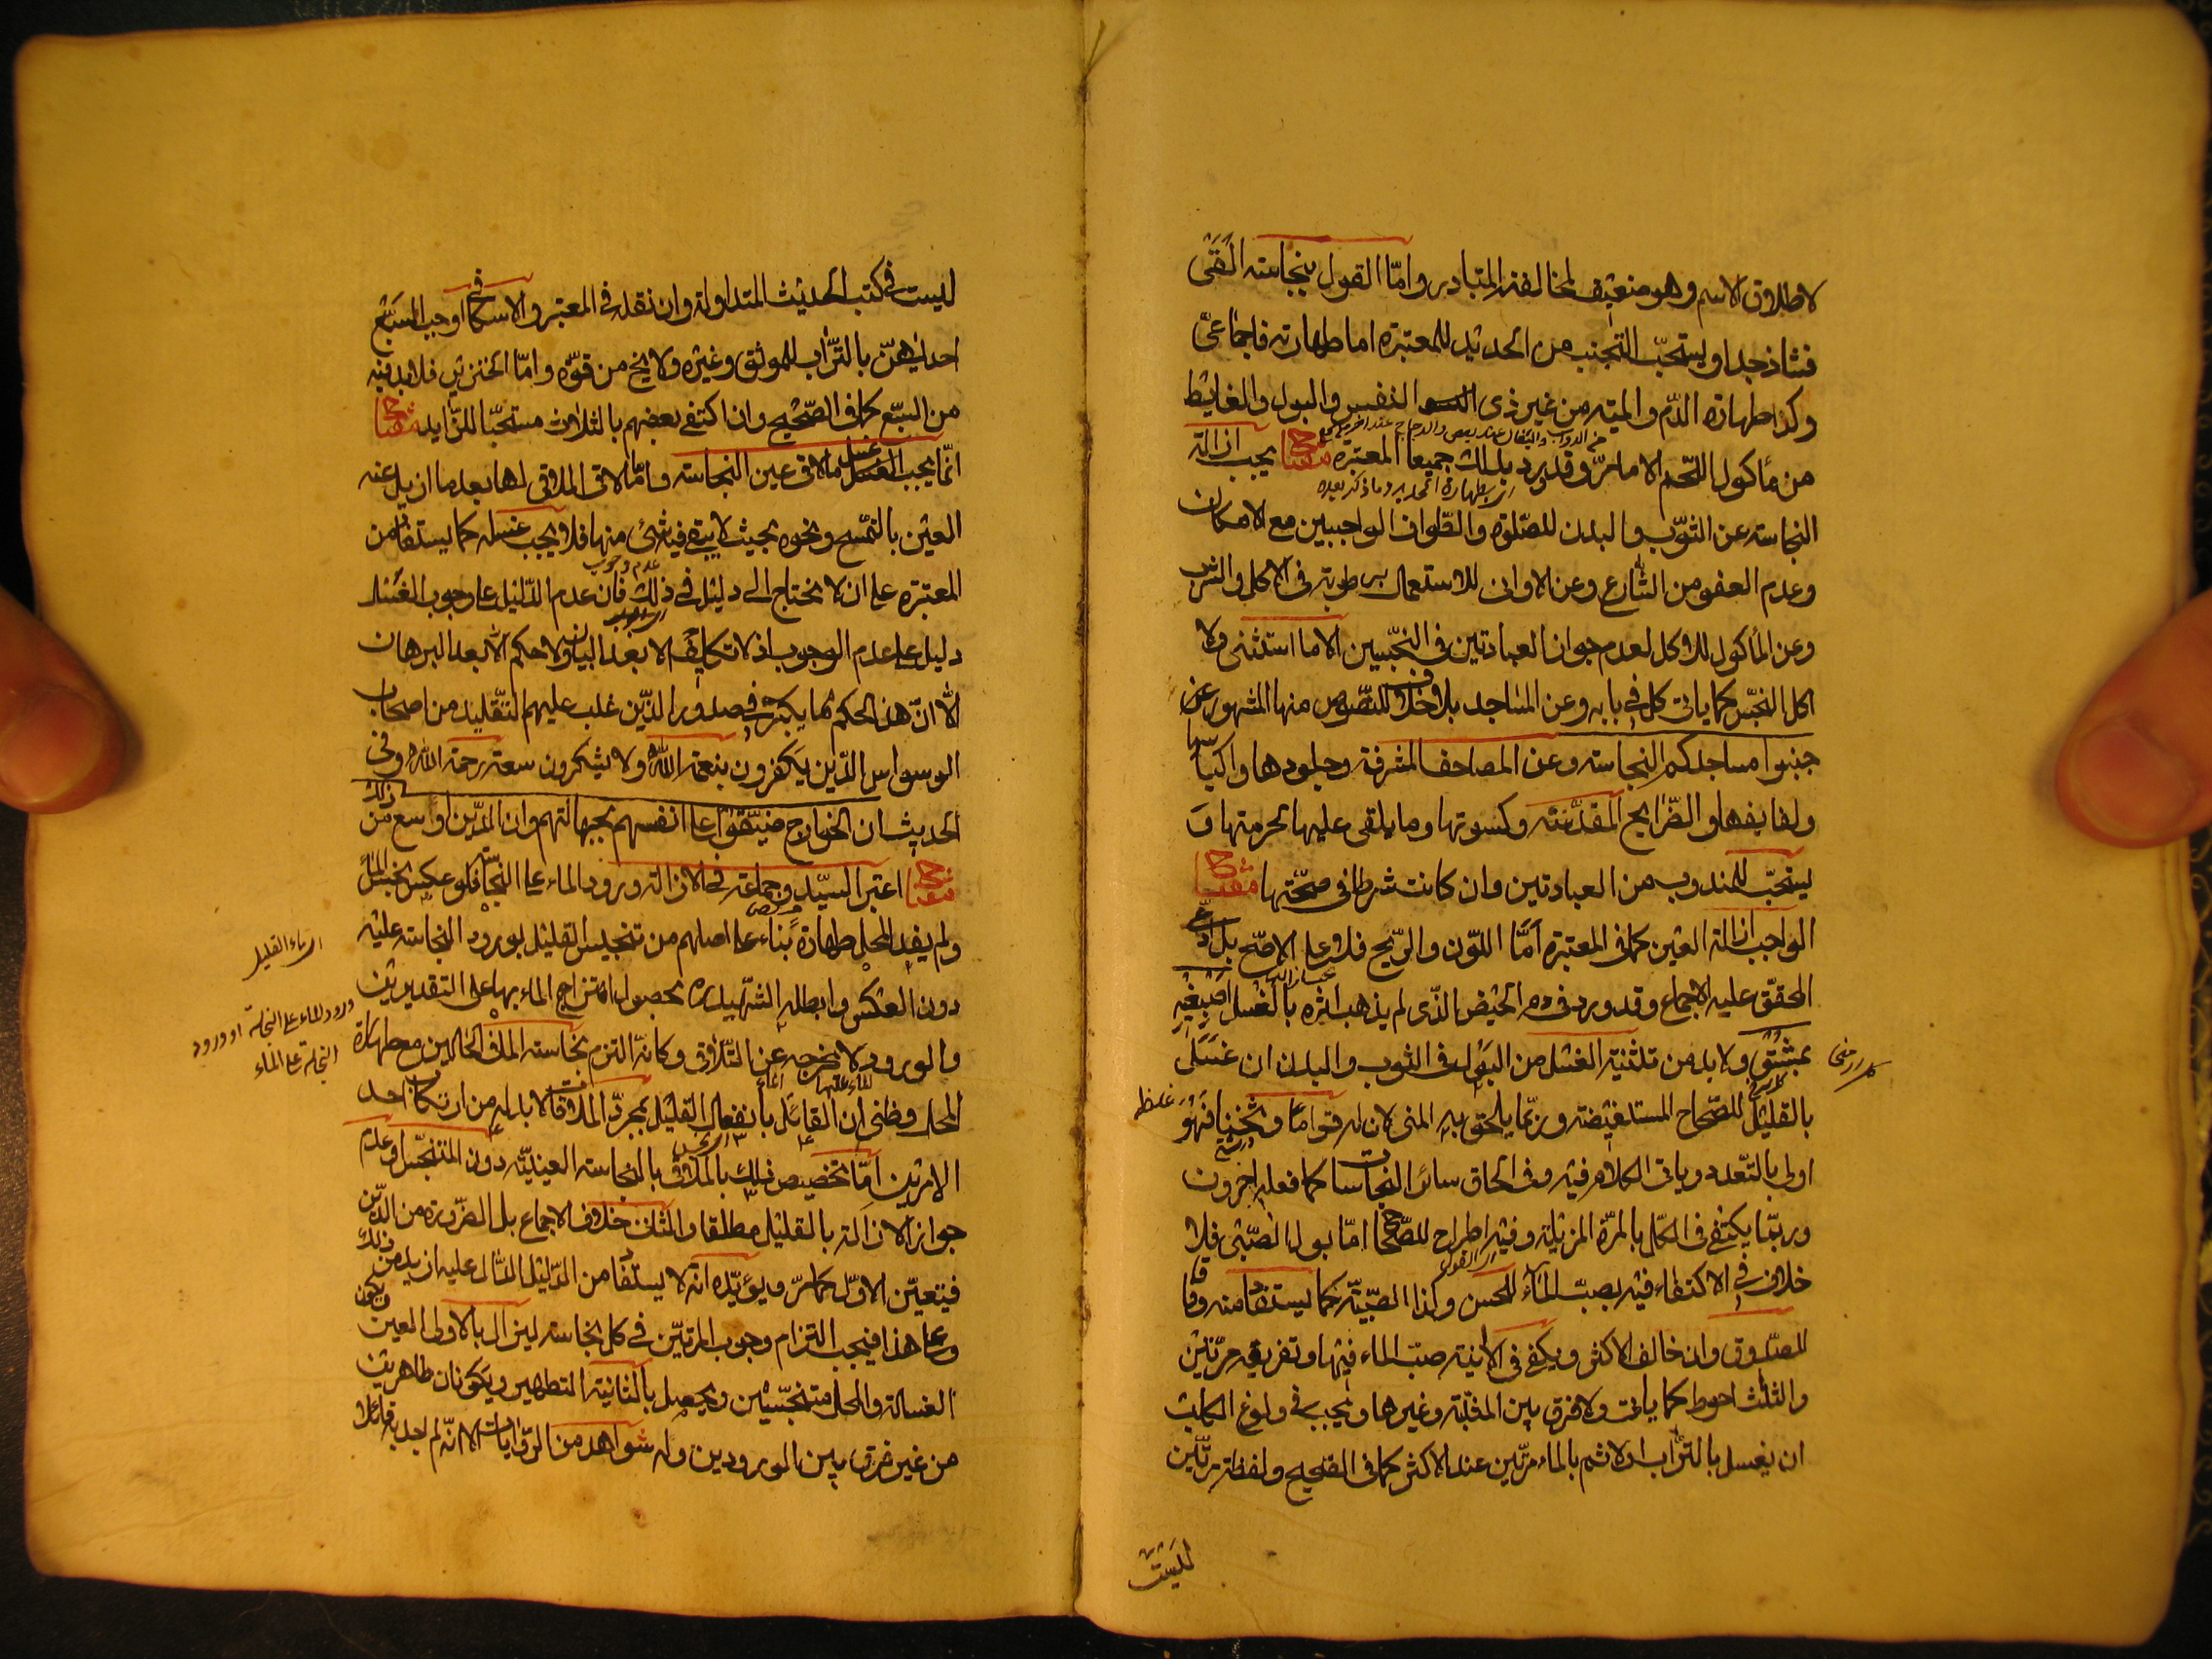 لاطلاق الاسم وهو ضعيف لمخالفة المتبادر واما القول بنجاسته القئ
فشاذ جدا ويستحب التجنب من الحديد للمعتبرة اما طهارته فاجماعي
وكذا طهارة الدم والميتة من غير ذى النفس والبول والغايط
من مأكول اللحم الا ما مر وقد ورد بذلك جميعا المعتبرة مفتاح يجب ازالة
النجاسة عن الثوب والبدن للصلوة والطواف الواجبين مع الامكان
وعدم العفو من الشارع وعن الاوانى للاستعمال برطوبة فى الاكل والشرب
وعن المأكول للاكل لعدم جواز العبادتين فى النجسين الا ما استثنى ولا
اكل النجس كما ياتى كل فى بابه وعن المساجد بلا خلاف للنصوص منها المشهور عن
جنبوا مساجدكم النجاسة وعن المصاحف المشرفة وجلودها واكياسها
ولفايفها والضرايح المقدسة وكسوتها وما يلقى عليها لحرمتها و
يستحب للمندوب من العبادتين وان كانت شرطا فى صحتها مفتاح
الواجب ازالة العين كما فى المعتبرة اما اللون والريح فلا على الاصح بل ادعى
المحقق عليه الاجماع وقد ورد فى دم الحيض الذى لم يذهب اثره بالغسل اصبغيه
بمشق ولا بد من تثنية الغسل من البول فى الثوب والبدن ان غسلا
بالقليل للصحاح المستفيضة وربما يلحق به المنى لان له قواما وثخنا فهو
غلظه
اولى بالتعدد وياتى الكلام فيه وفى الحاق سائر النجاسات كما فعله اخرون
وربما يكتفى فى الكل بالمرة المزيلة وفيه اطراح للصحاح اما بول الصبى فلا
خلاف فى الاكتفاء فيه بصب الماء للحسن وكذا الصبية كما يستفاد منه وفاقا
للصدوق وان خالف الاكثر ويكفى فى الانية صب الماء فيها وتفريغه مرتين
والثلث احوط كما ياتى ولا فرق بين المثبتة وغيرها ويجب فى ولوغ الكلب
ان يغسل بالتراب اولا ثم بالماء مرتين عند الاكثر كما فى الصحيح ولفظة مرتين
ليست
ليست فى كتب الحديث المتداولة وان نقله فى المعتبر والاسكافى اوجب السبع
احديهن بالتراب للموثق وغيره ولا يخ من قوة واما الخنزير فلا بد فيه
من السبع كما فى الصحيح وان اكتفى بعضهم بالثلاث مستحبا للزايد مفتاح
انما يجب غسل ما لاقى عين النجاسة واما ما لاقى الملاقى لها بعد ما ازيل عنه
العين بالتمسح ونحوه بحيث لا يبقى فيه شئ منها فلا يجب غسله كما يستفاد من
المعتبرة على ان لا نحتاج الى دليل فى ذلك فان عدم الدليل على وجوب الغسل
دليل على عدم الوجوب اذ لا تكليف الا بعد البيان ولا حكم الا بعد البرهان
الا ان هذا الحكم مما يكبر فى صدور الذين غلب عليهم التقليد من اصحاب
الوسواس الذين يكفرون بنعمة الله ولا يشكرون سعة رحمة الله وفى
الحديث ان الخوارج ضيقوا على انفسهم بجهالتهم وان الدين اوسع من ذلك
مفتاح اعتبر السيد وجماعة فى الازالة ورود الماء على النجاسة فلو عكس نجس الماء
ولم يفد المحل طهارة بناء على اصلهم من تنجيس القليل بورود النجاسة عليه
اى ماء القليل
دون العكس وابطله الشهيد ره بحصول امتزاج الماء بها على التقديرين
ورود الماء على النجاسة او ورود
النجاسة على الماء
والورود لا يخرجه عن التلاقى وكانه التزم نجاسة الماء فى الحالين مع طهارة
المحل وظنى ان القائل بانفعال القليل بمجرد الملاقات لا بد له من ارتكاب احد
الامرين اما تخصيص ذلك بالملاقى بالنجاسة العينية دون المتنجس او عدم
جواز الازالة بالقليل مطلقا والثانى خلاف الاجماع بل الضرورة من الدين
فيتعين الاول كما مر ويؤيده انه لا يستفاد من الدليل الدال عليه ازيد من ذلك
وعلى هذا فيجب التزام وجوب المرتين فى كل نجاسة ليزال بالاولى العين ويكون
الغسالة والمحل متنجسين ويحصل بالثانية التطهير ويكونان طاهرين
من غير فرق بين الورودين وله شواهد من الروايات الا انه لم اجد به قائلا